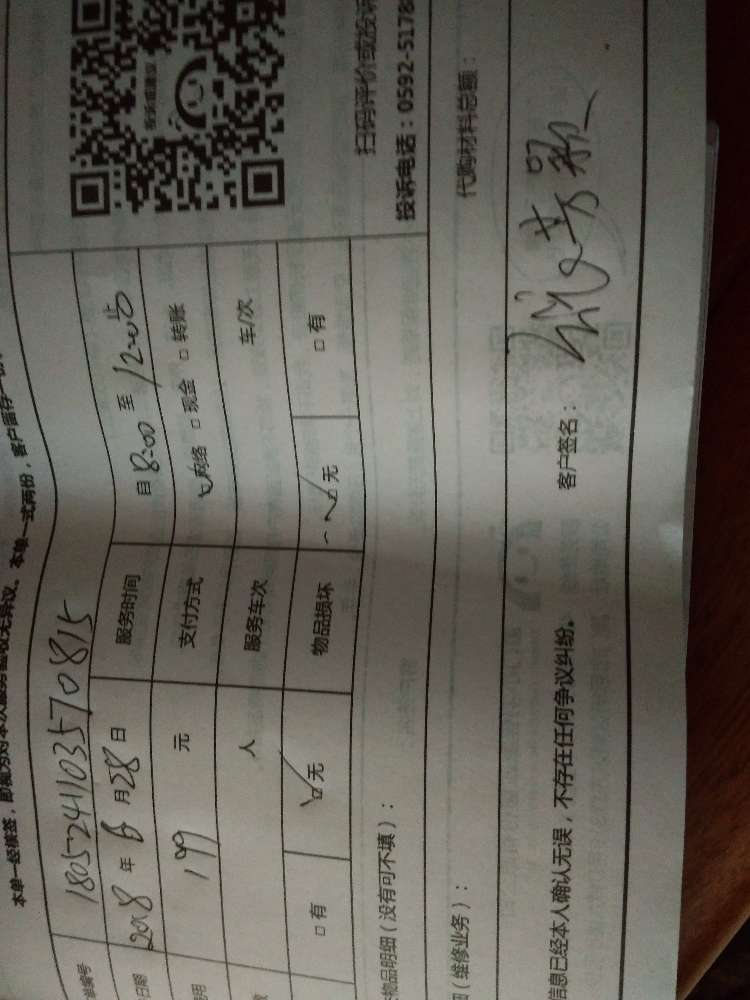 本单一经签签，即视为对本次服务验收无异议。本单一式两份，客户留存一份
单编号 1805241103570815
日期 2018 年 6 月 28 日 服务时间 自 8:00 至 12:00
用 199 元 支付方式 ☑网络 □现金 □转账
人 服务车次 车/次
□有 ☑无 物品损坏 ☑无 □有
扫码评价或投诉
投诉电话：0592-5178
物品明细（没有可不填）：
（维修业务）： 代购材料总额：
信息已经本人确认无误，不存在任何争议纠纷。 客户签名：